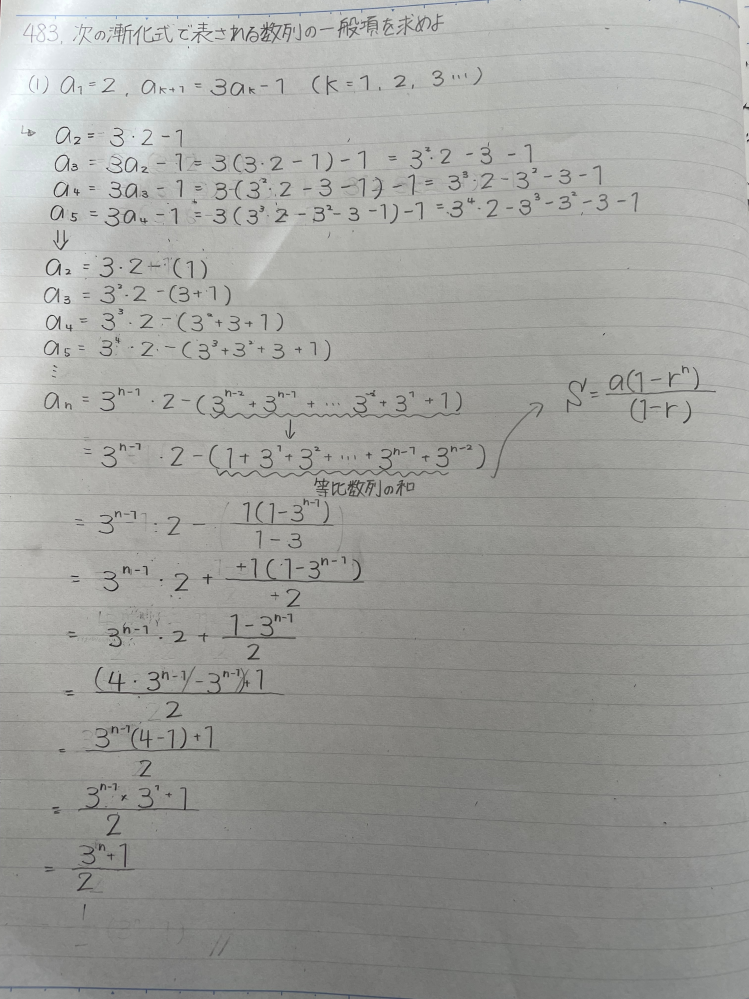 483. 次の漸化式で表される数列の一般項を求めよ
(1) a₁=2, aₖ₊₁ = 3aₖ-1 (k=1, 2, 3…)
↳ a₂ = 3・2-1
a₃ = 3a₂-1 = 3(3・2-1)-1 = 3²・2-3-1
a₄ = 3a₃-1 = 3(3²・2-3-1)-1 = 3³・2-3²-3-1
a₅ = 3a₄-1 = 3(3³・2-3²-3-1)-1 = 3⁴・2-3³-3²-3-1
⇓
a₂ = 3・2-(1)
a₃ = 3²・2-(3+1)
a₄ = 3³・2-(3²+3+1)
a₅ = 3⁴・2-(3³+3²+3+1)
⋮
aₙ = 3ⁿ⁻¹・2-(3ⁿ⁻²+3ⁿ⁻¹+…3⁻²+3¹+1)
↓
= 3ⁿ⁻¹・2-(1+3¹+3²+…+3ⁿ⁻¹+3ⁿ⁻²)
等比数列の和
S = a(1-rⁿ)/(1-r)
= 3ⁿ⁻¹・2 - 1(1-3ⁿ⁻¹)/1-3
= 3ⁿ⁻¹・2 + +1(1-3ⁿ⁻¹)/+2
= 3ⁿ⁻¹・2 + 1-3ⁿ⁻¹/2
= (4・3ⁿ⁻¹-3ⁿ⁻¹)+1/2
= 3ⁿ⁻¹(4-1)+1/2
= 3ⁿ⁻¹×3¹+1/2
= 3ⁿ+1/2